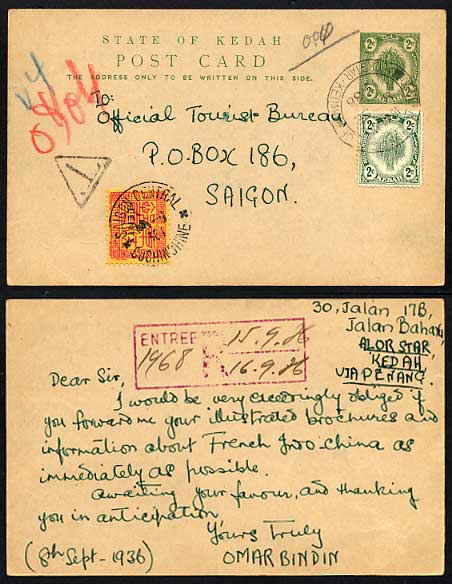 STATE OF KEDAH
POST CARD
THE ADDRESS ONLY TO BE WRITTEN ON THIS SIDE.
2c 2c
2c 2c
KEDAH
To:
Official Tourist Bureau,
P.O.BOX 186,
SAIGON.
T
CENTRAL
COCHINCHINE
30, Jalan 17B,
Jalan Baharu,
ALOR STAR,
KEDAH
VIA PENANG.
ENTREE 15.9.36
1968 R 16.9.36
Dear Sir,
I would be very exceedingly obliged if
you forward me your illustrated brochures and
information about French Indo-china as
immediately as possible.
Awaiting your favour, and thanking
you in anticipation
Yours Truly
(8th Sept - 1936) OMAR BINDIN